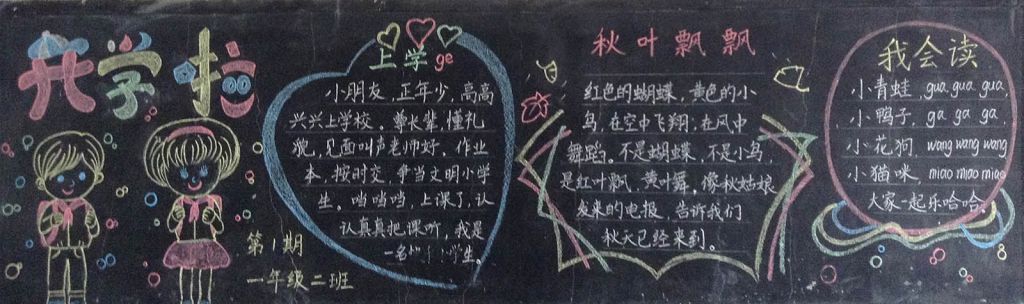 开学啦
第1期
一年级二班
上学 ge
小朋友，正年少，高高
兴兴上学校。尊长辈，懂礼
貌，见面叫声老师好。作业
本，按时交，争当文明小学
生。噹噹噹，上课了，认
认真真把课听，我是
一名小学生。
秋叶飘飘
红色的蝴蝶，黄色的小
鸟，在空中飞翔，在风中
舞蹈。不是蝴蝶，不是小鸟，
是红叶飘，黄叶舞。像秋姑娘
发来的电报，告诉我们
秋天已经来到。
我会读
小青蛙，gua gua gua，
小鸭子，ga ga ga
小花狗，wang wang wang
小猫咪，miao miao miao
大家一起乐哈哈。